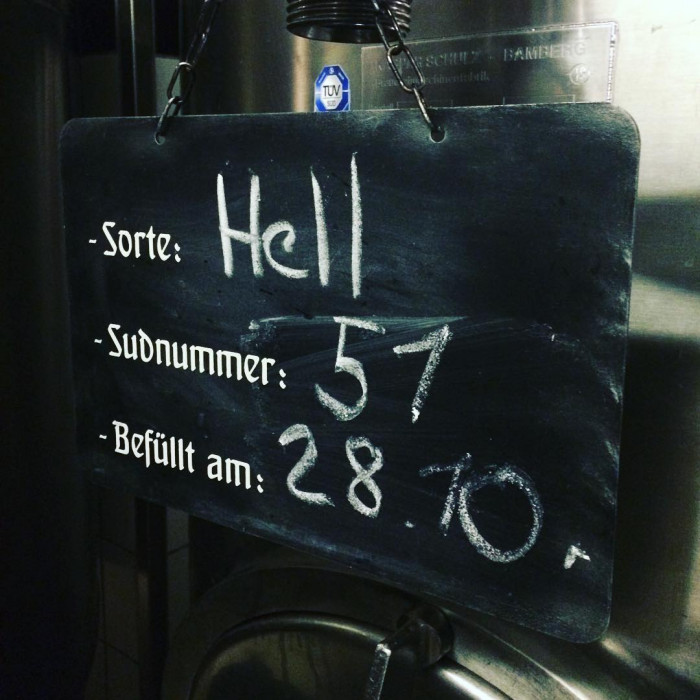 SCHULZ - BAMBERG
TÜV
- Sorte: Hell
- Sudnummer: 51
- Befüllt am: 28.10.